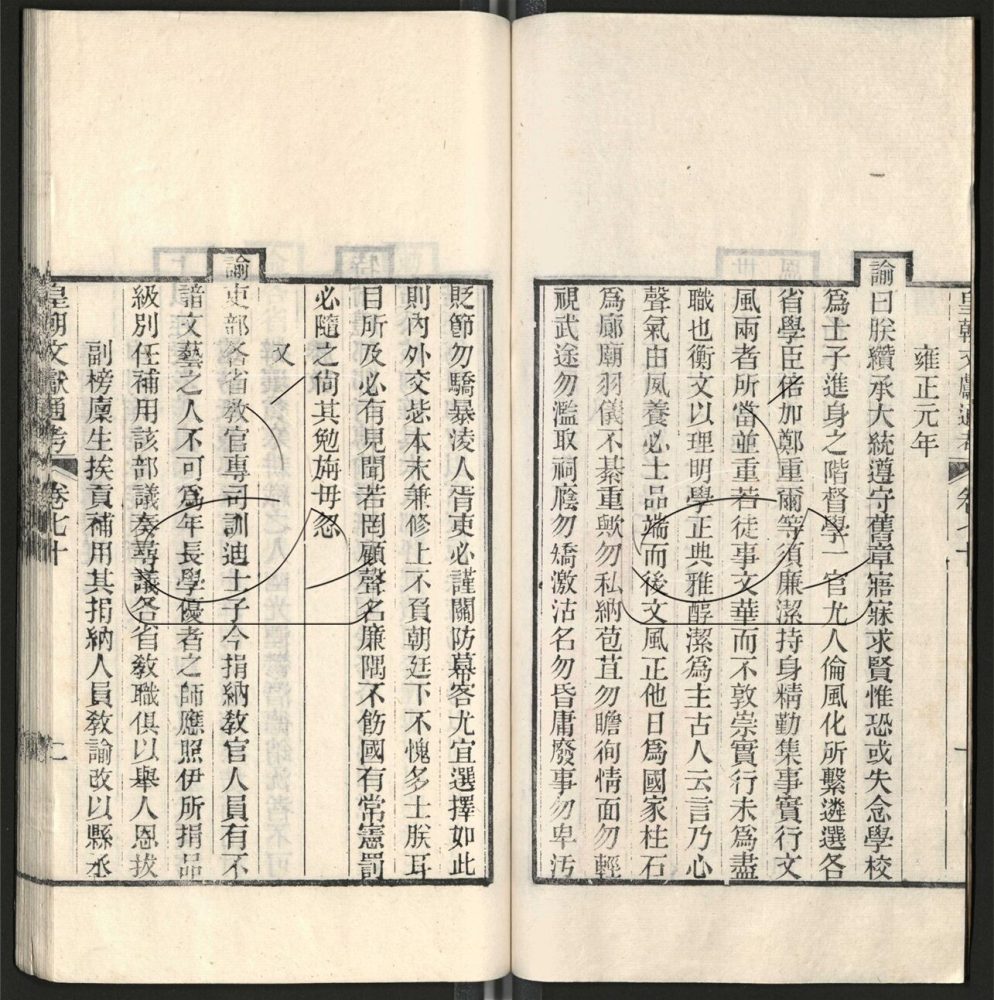 皇朝文獻通考 卷七十 一
雍正元年
諭曰朕纘承大統遵守舊章寤寐求賢惟恐或失念學校
爲士子進身之階督學一官尤人倫風化所繫遴選各
省學臣倍加鄭重爾等須廉潔持身精勤集事實行文
風兩者所當並重若徒事文華而不敦崇實行未爲盡
職也衡文以理明學正典雅醇潔爲主古人云言乃心
聲氣由風養必士品端而後文風正他日爲國家柱石
爲廟廊羽儀不綦重歟勿私納苞苴勿瞻徇情面勿輕
視武途勿濫取祠廕勿矯激沽名勿昏庸廢事勿卑汚
貶節勿驕暴淩人胥吏必謹關防幕客尤宜選擇如此
則內外交毖本末兼修上不負朝廷下不愧多士朕耳
目所及必有見聞若罔顧聲名廉隅不飭國有常憲罰
必隨之倘其勉旃毋忽
又
諭吏部各省敎官專司訓迪士子今捐納敎官人員有不
諳文藝之人不可爲年長學優者之師應照伊所捐品
級別任補用該部議奏尋議各省敎職俱以舉人恩拔
副榜廩生挨貢補用其捐納人員敎諭改以縣丞
皇朝文獻通考 卷七十 二